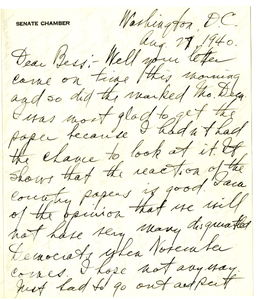 SENATE CHAMBER
Washington, D.C.
Aug 27, 1940.
Dear Bess:- Well your letter
came on time this morning
and so did the marked Mo. Dem.
I was most glad to get the
paper because I hadn't had
the chance to look at it. It
shows that the reaction of the
country papers is good. I am
of the opinion that we will
not have very many disgruntled
Democrats when November
comes. I hope not anyway.
Just had to go out and